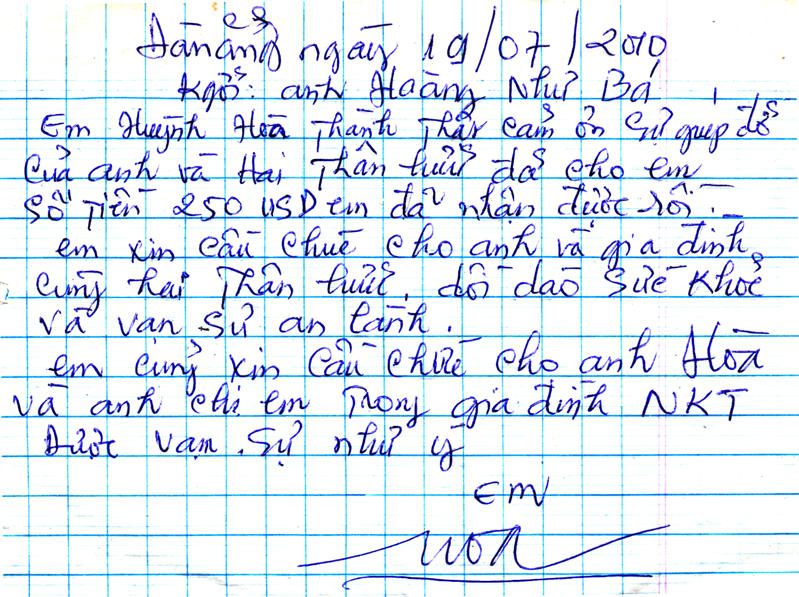 Đànẵng ngày 19/07/2010
Kgởi: anh Hoàng Như Bá
Em Huỳnh Hoà Thành Thật cảm ơn sự guip đỡ
Của anh và Hai Thân hữu đã cho em
Số Tiền 250 USD em đã nhận được rồi.
em xin cầu chúc cho anh và gia đình
cùng hai Thân hữu. dồi dào sức khoẻ
và vạn sự an lành.
em cũng xin cầu chúc cho anh Hoà
và anh chi em Trong gia đình NKT
Được vạn sự như ý
Em